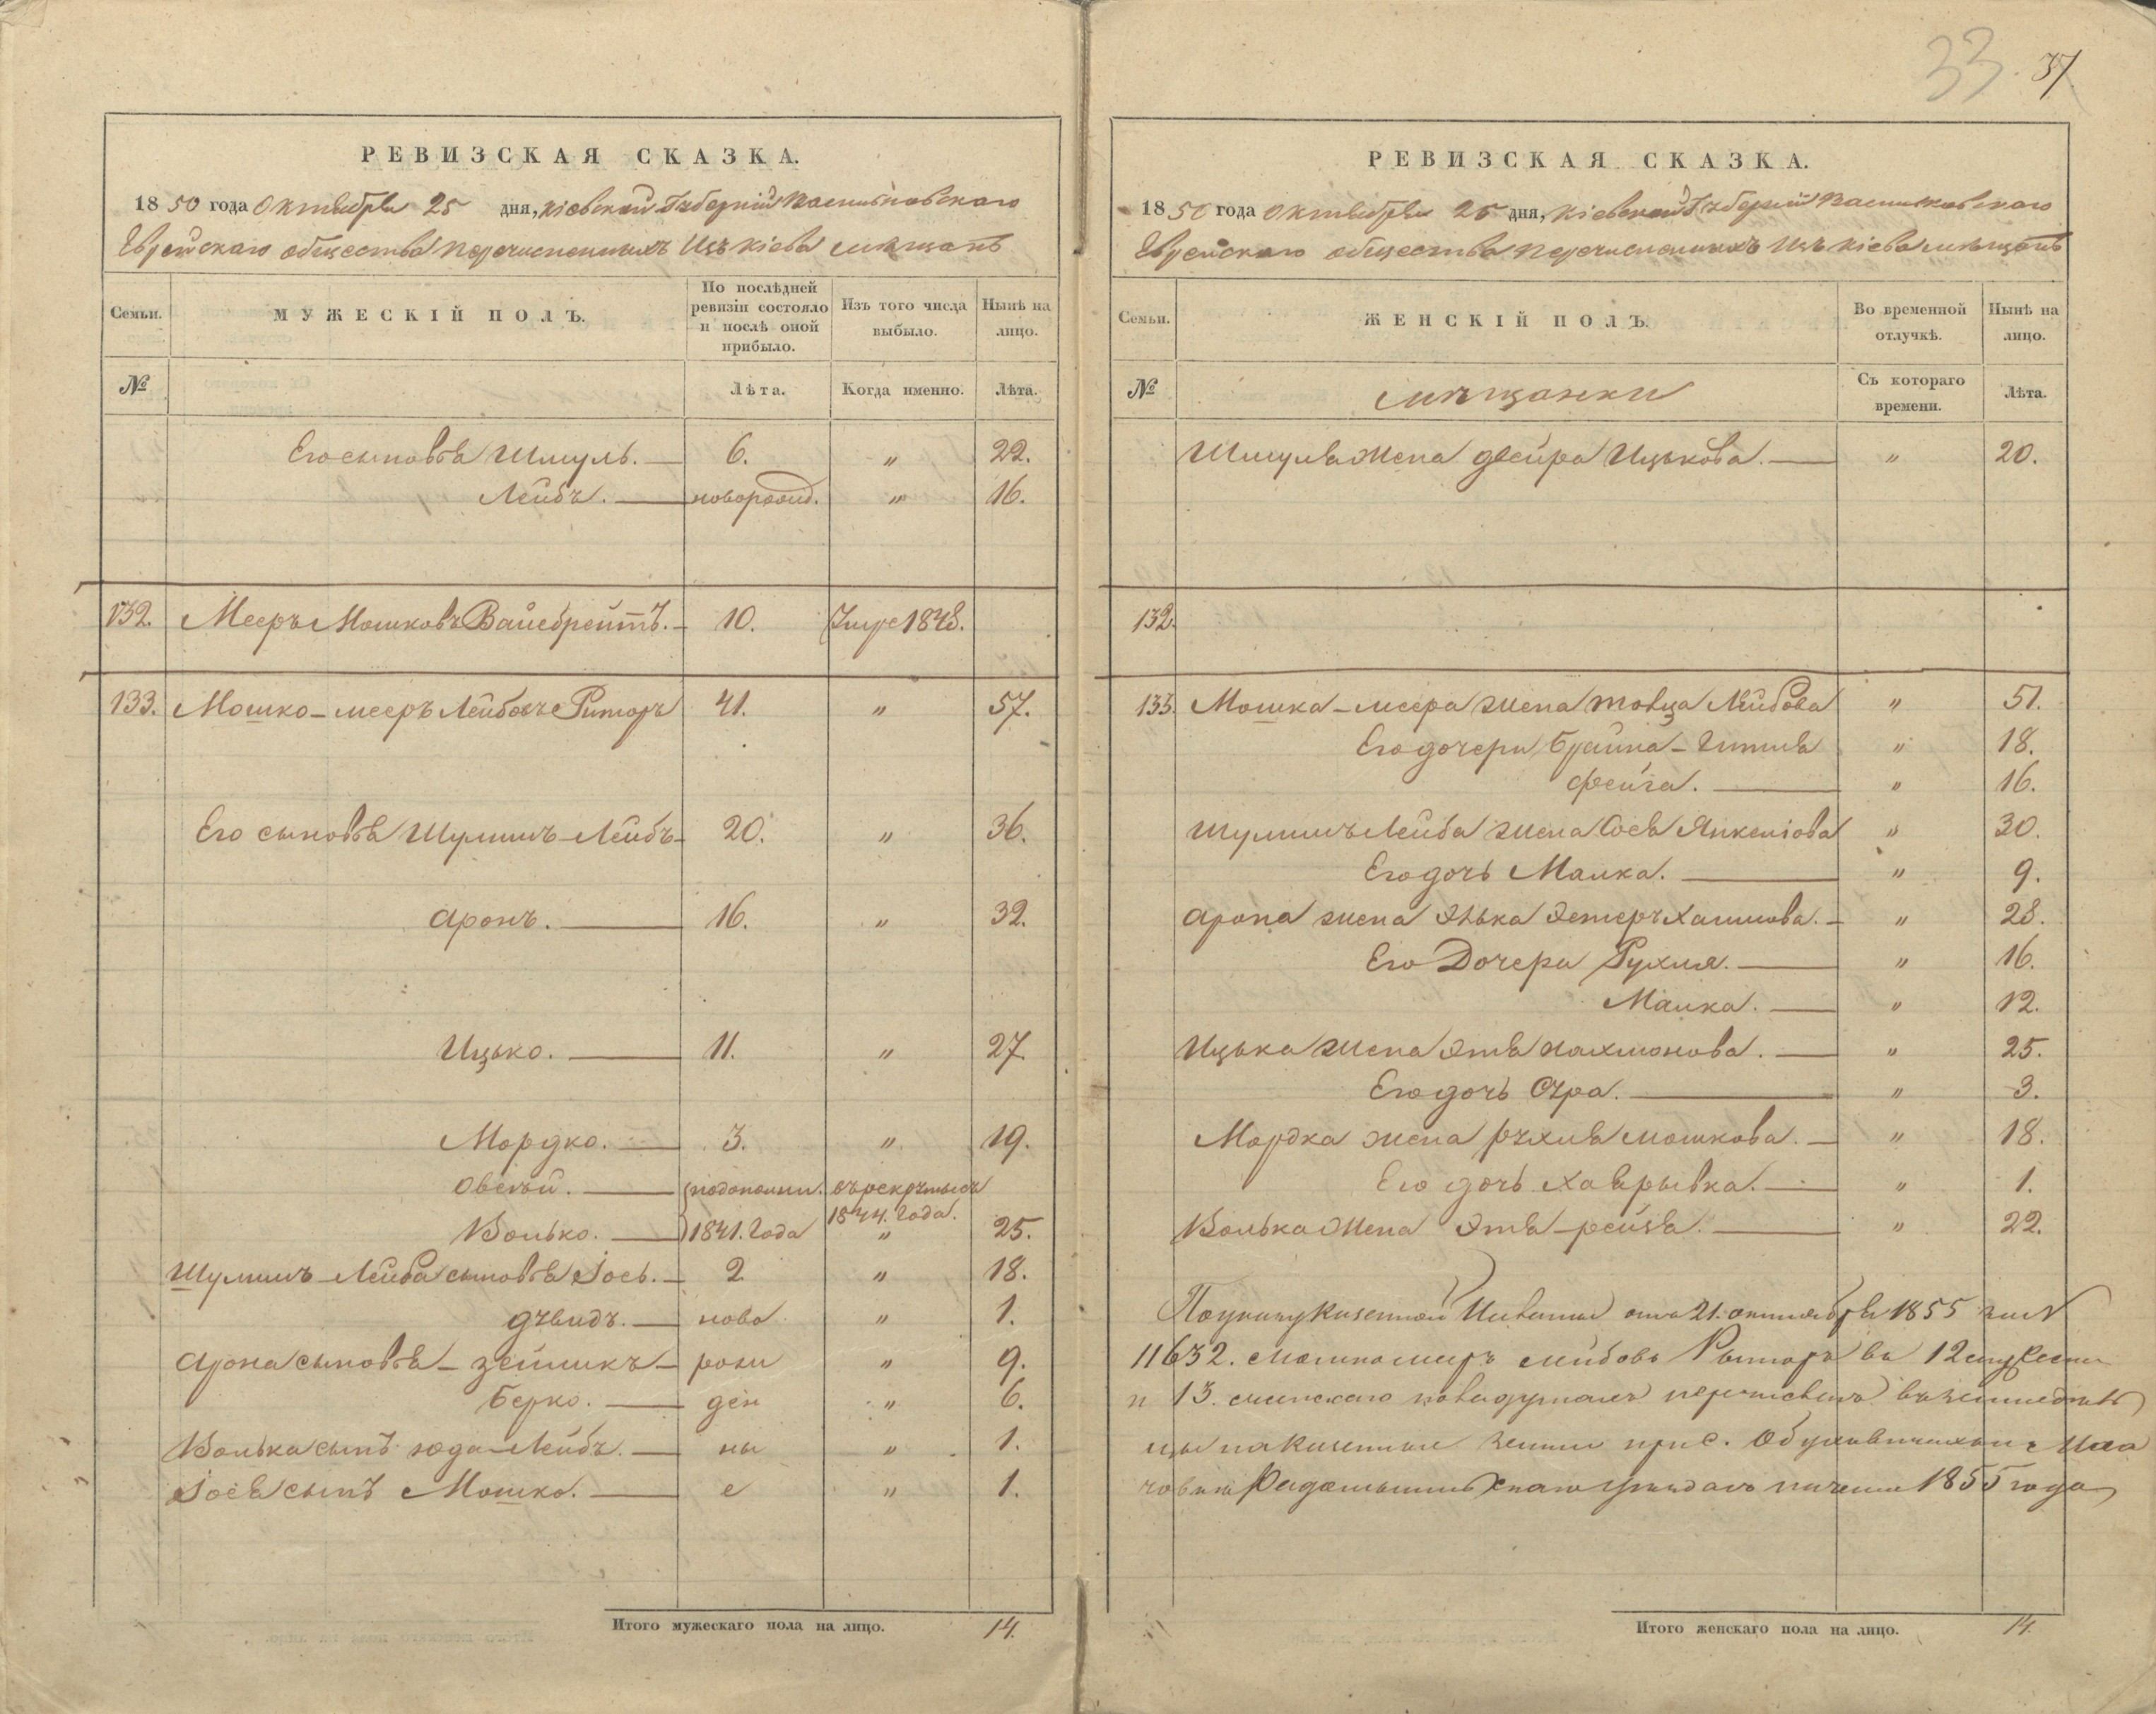 33. 37
РЕВИЗСКАЯ СКАЗКА.
1850 года Октября 25 дня, Кіевской Губерніи Васильковскаго
Еврейскаго общества перечисленныхъ изъ Кіева мѣщанъ
Семьи.
МУЖЕСКІЙ ПОЛЪ.
По послѣдней ревизіи состояло и послѣ оной прибыло.
Изъ того числа выбыло.
Нынѣ на лицо.
№
Лѣта.
Когда именно.
Лѣта.
Его сыновья Шмуль. 6. " 22.
Лейбъ. новорожд. " 16.
132. Мееръ Мошковъ Вайсбрейтъ. 10. Умре 1848.
133. Мошко-мееръ Лейбовъ Риторъ 41. " 57.
Его сыновья Шулимъ-Лейбъ 20. " 36.
Аронъ. 16. " 32.
Ицько. 11. " 27.
Мордко. 3. " 19.
Овсѣй. подополни. въ рекруты съ
Волько. 1841. года 1844. года. " 25.
Шулимъ-Лейба сыновья Іось. 2 " 18.
дувидъ. ново " 1.
Арона сыновья-зейликъ рож " 9.
Берко. ден " 6.
Волька сынъ юда-Лейбъ. ны " 1.
Іося сынъ Мошко. е " 1.
Итого мужескаго пола на лицо. 14.
РЕВИЗСКАЯ СКАЗКА.
1850 года октября 25 дня, Кіевской Губерніи Васильковскаго
Еврейскаго общества перечисленныхъ изъ Кіева мѣщанъ
Семьи.
ЖЕНСКІЙ ПОЛЪ.
Во временной отлучкѣ.
Нынѣ на лицо.
№
мѣщанки
Съ котораго времени.
Лѣта.
Шмуля жена двейра Ицькова. " 20.
132.
133. Мошка-меера жена товца Лейбова " 51.
Его дочери Брайна-Гитля " 18.
Фейга. " 16.
Шулимъ Лейба жена Сося Янкелiова " 30.
Его дочь Малка. " 9.
Арона жена Элька Эстеръ Хаимова. " 28.
Его Дочери Рухля. " 16.
Малка. " 12.
Ицька жена Этя Нахманова. " 25.
Его дочь Сура. " 3.
Мордка жена рухля мошкова. " 18.
Его дочь Хая рывка. " 1.
Волька жена Этя-рейзя. " 22.
По указу Казенной Палаты отъ 21. октября 1855 за №
11632. Мошко мееръ Лейбовъ Риторъ въ 12 мужеска
и 13. женскаго пола душахъ перечисленъ въ земледѣль
цы на казенныя земли при с.
Радомысльскаго уѣзда съ начала 1855 года
Итого женскаго пола на лицо. 14.